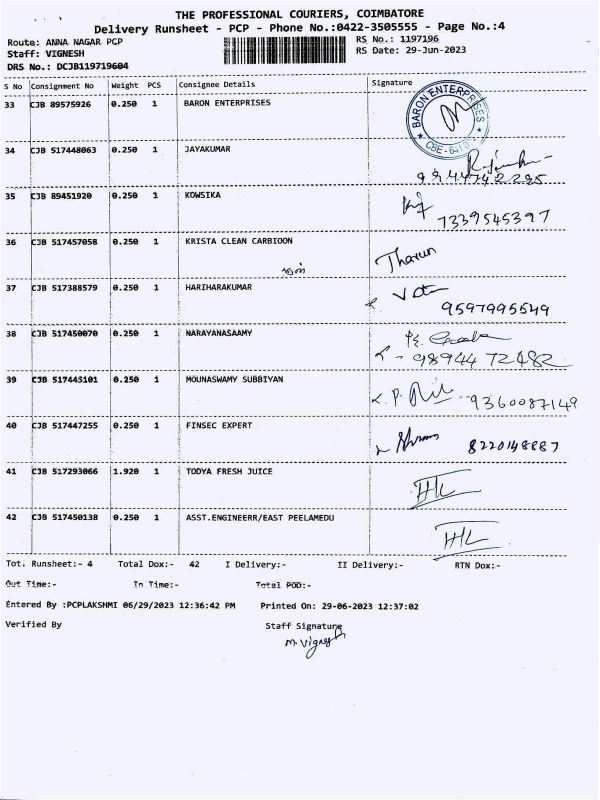 THE PROFESSIONAL COURIERS, COIMBATORE
Delivery Runsheet - PCP - Phone No.:0422-3505555 - Page No.:4
Route: ANNA NAGAR PCP RS No.: 1197196
Staff: VIGNESH RS Date: 29-Jun-2023
DRS No.: DCJB119719604
S No Consignment No Weight PCS Consignee Details Signature
33 CJB 89575926 0.250 1 BARON ENTERPRISES BARON ENTERPRISES
34 CJB 517448063 0.250 1 JAYAKUMAR
9944742295
35 CJB 89451920 0.250 1 KOWSIKA
7339545397
36 CJB 517457058 0.250 1 KRISTA CLEAN CARBIOON Tharun
37 CJB 517388579 0.250 1 HARIHARAKUMAR
9597995549
38 CJB 517450070 0.250 1 NARAYANASAAMY
98944 72482
39 CJB 517445101 0.250 1 MOUNASWAMY SUBBIYAN
9360087149
40 CJB 517447255 0.250 1 FINSEC EXPERT
8220148887
41 CJB 517293066 1.920 1 TODYA FRESH JUICE
42 CJB 517450138 0.250 1 ASST.ENGINEERR/EAST PEELAMEDU
Tot. Runsheet:- 4 Total Dox:- 42 I Delivery:- II Delivery:- RTN Dox:-
Out Time:- In Time:- Total POD:-
Entered By :PCPLAKSHMI 06/29/2023 12:36:42 PM Printed On: 29-06-2023 12:37:02
Verified By Staff Signature
M. Vignesh